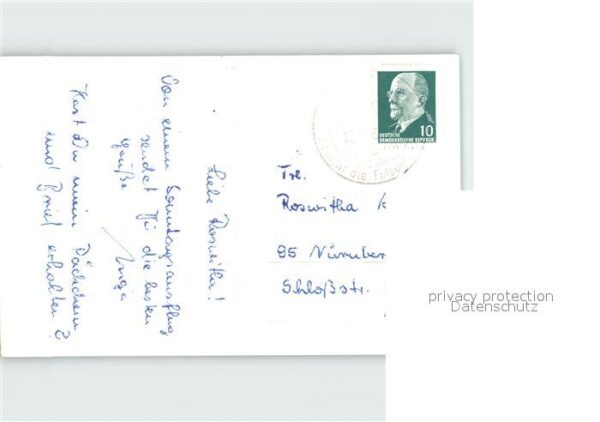 Liebe Roswitha!
Von einem Sonntagsausflug
sendet Dir die besten
Grüße
Inga
Hast Du mein Päckchen
und Brief erhalten?
10
DEUTSCHE
DEMOKRATISCHE REPUBLIK
die
Frl.
Roswitha
85 Nürnber
Schloßstr.
privacy protection
Datenschutz